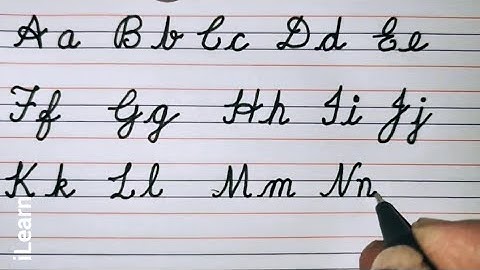 A a B b C c D d E e
F f G g H h I i J j
K k L l M m N n
iLearn